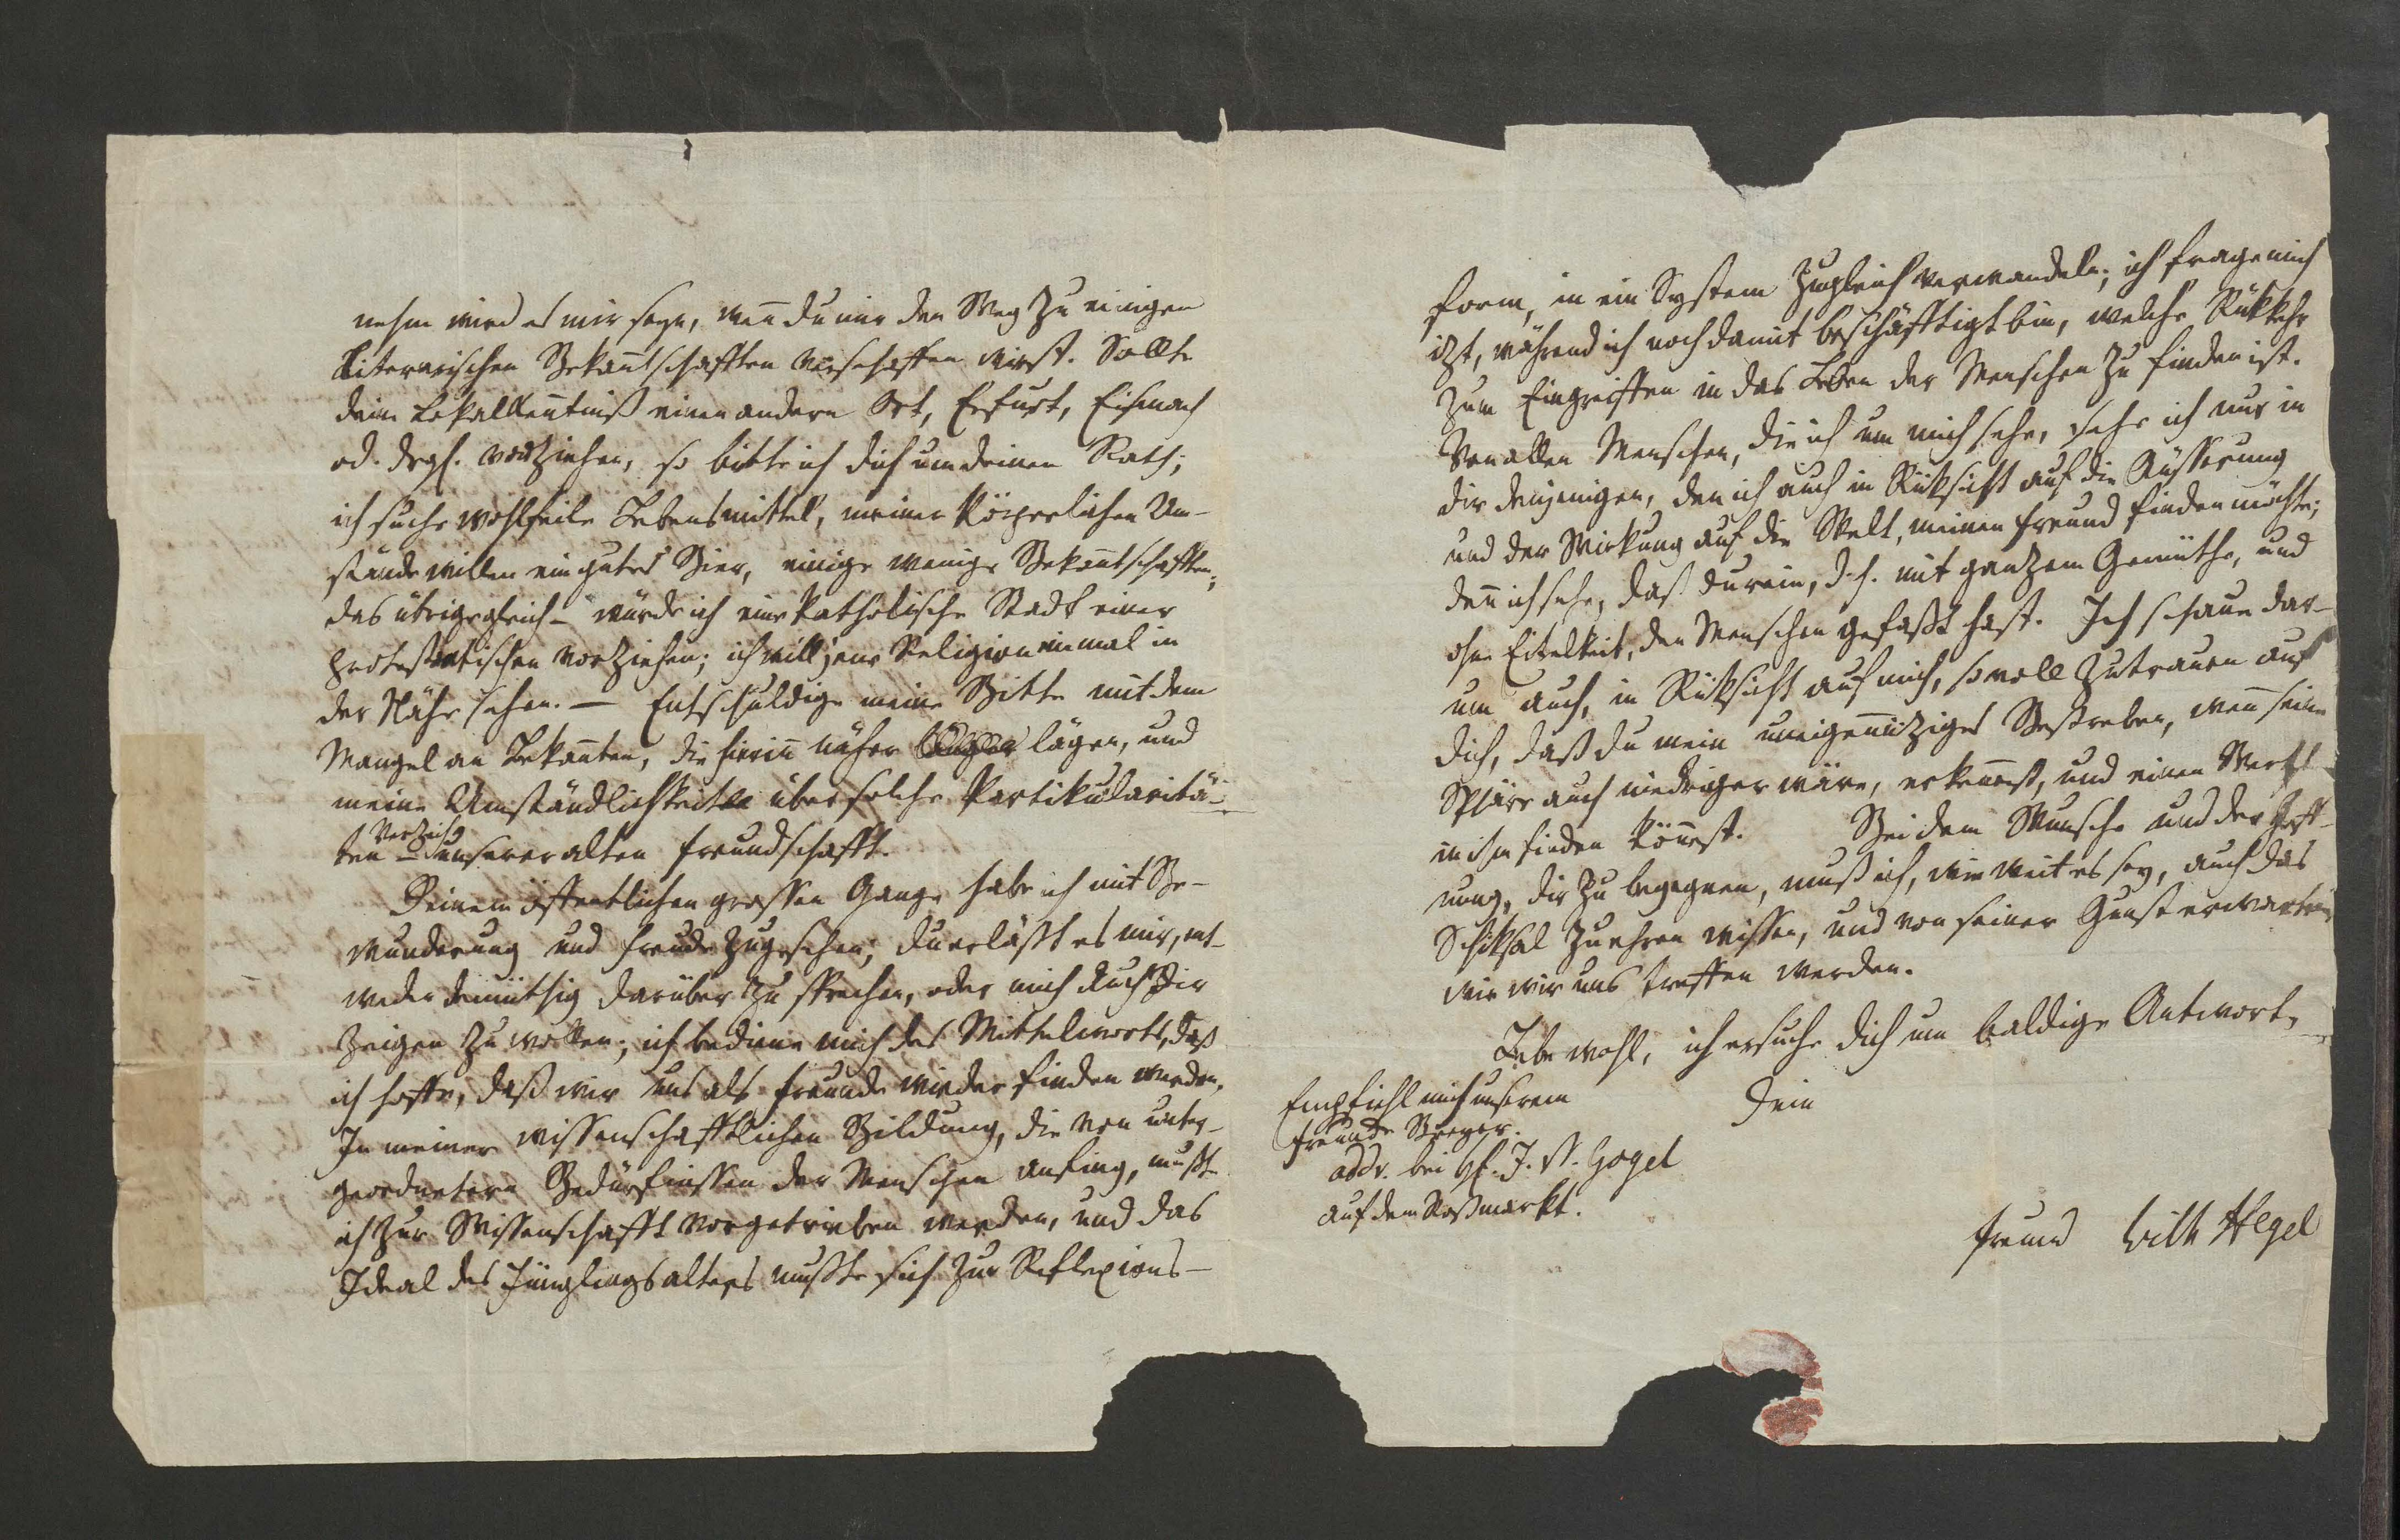 nehm wird es mir seyn, weñ du mir den Weg zu einigen
literarischen Bekañtschafften verschaffen wirst. Sollte
deine Lokalkeñtniß einen andern Ort, Erfurt, Eisenach
od. drgl. vorziehen, so bitte ich dich um deinen Rath;
ich suche wohlfeile Lebensmittel, meiner körperlichen Um-
stände willen ein gutes Bier, einige wenige Bekañtschafften;
das übrige gleich – würde ich eine katholische Stadt einer
protestantischen vorziehen; ich will jene Religion einmal in
der Nähe sehen. — Entschuldige meine Bitte mit dem
Mangel an Bekañten, die hieriñ näher lägen, und
meine Umständlichkeit über solche Partikularitä-
ten verzeih unserer alten Freundschafft.
Deinem öffentlichen grossen Gange habe ich mit Be-
wunderung und Freude zugesehen; du erläßt es mir, ent-
weder demüthig darüber zu sprechen, oder mich auch Dir
zeigen zu wollen; ich bediene mich des Mittelworts, daß
ich hoffe, daß wir uns als Freunde wieder finden werden.
In meiner wissenschafftlichen Bildung, die von unter-
geordnetern Bedürfnissen der Menschen anfing, mußte
ich zur Wissenschafft vorgetrieben werden, und das
Ideal des Jünglingsalters mußte sich zur Reflexions-
form, in ein System zugleich verwandeln; ich frage mich
itzt, während ich noch damit beschäfftigt bin, welche Rükkehr
zum Eingreiffen in das Leben der Menschen zu finden ist.
Von allen Menschen, die ich um mich sehe, sehe ich nur in
dir denjenigen, den ich auch in Rüksicht auf die Äusserung
und der Wirkung auf die Welt, meinen Freund finden möchte;
deñ ich sehe, daß du rein, d.h. mit ganzem Gemüthe, und
ohne Eitelkeit, den Menschen gefaßt hast. Ich schaue dar-
um auch, in Rüksicht auf mich, so voll Zutrauen auf
dich, daß du mein uneigeñütziges Bestreben, weñ seine
Sphäre auch niedriger wäre, erkeñest, und einen Werth
in ihm finden köñest. Bei dem Wunsche und der Hoff-
nung, dir zu begegnen, muß ich, wie weit es sey, auch das
Schiksal zu ehren wissen, und von seiner Gunst erwarten,
wie wir uns treffen werden.
Lebe wohl, ich ersuche dich um baldige Antwort,
Dein
Empfiehl mich unserem
Freunde Breyer.
addr. bei H. J. N. Gogel
auf dem Roßmarkt.
Freund Wilh Hegel